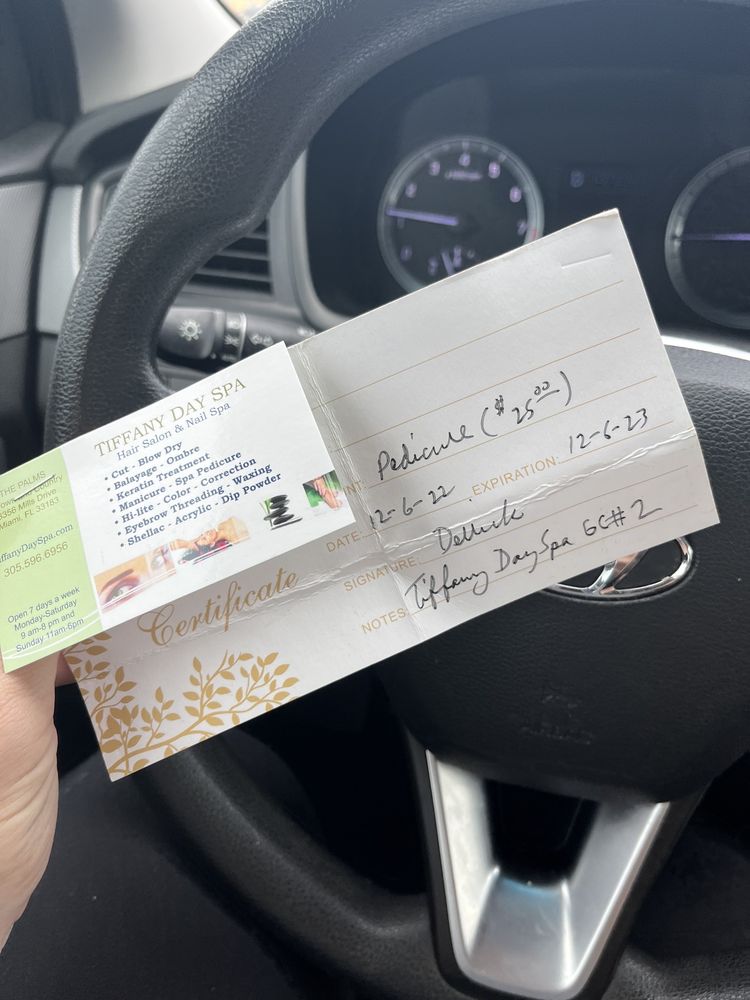 TIFFANY DAY SPA
Hair Salon & Nail Spa
• Cut - Blow Dry
• Balayage - Ombre
• Keratin Treatment
• Manicure - Spa Pedicure
• Hi-lite - Color - Correction
• Eyebrow Threading - Waxing
• Shellac - Acrylic - Dip Powder
THE PALMS
Mills Drive
Miami, FL 33183
305.596.6956
Open 7 days a week
Monday-Saturday
9 am-8 pm and
Sunday 11am-6pm
Certificate
Pedicure ($25.00)
DATE: 12-6-22 EXPIRATION: 12-6-23
SIGNATURE:
NOTES: Tiffany Day Spa GC# 2